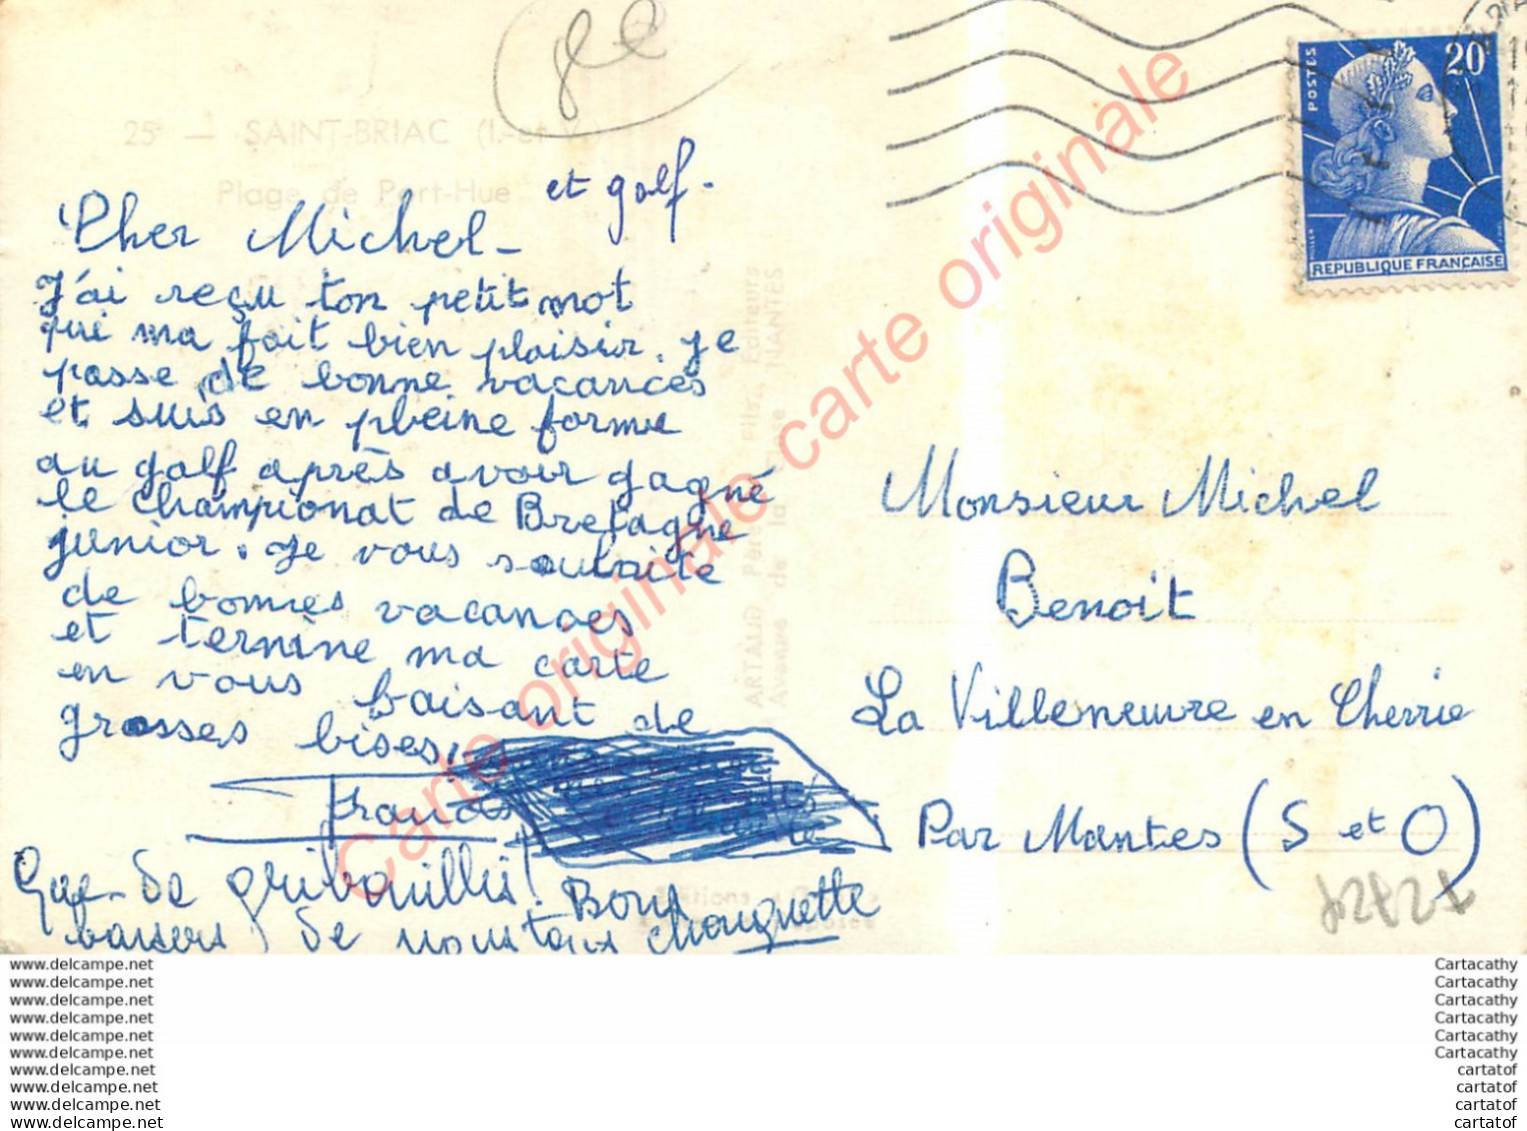 25 — SAINT-BRIAC (I.-et-V.)
Plage de Port-Hue
et golf.
Cher Michel -
J'ai reçu ton petit mot
qui ma fait bien plaisir. je
passe de bonne vacances
et suis en pleine forme
au golf après avoir gagné
le championat de Bretagne
junior. Je vous souhaite
de bonnes vacances
et termine ma carte
en vous baisant de
grosses bises.
Que de gribouillis! Bons
baisers de nous tous Chouquette
POSTES
20
REPUBLIQUE FRANÇAISE
Monsieur Michel
Benoit
La Villeneuvre en Cherrie
Par Mantes (S et O)
ARTAUD Père Fils, Editeurs
Avenue de la NANTES
Carte originale carte originale
www.delcampe.net
www.delcampe.net
www.delcampe.net
www.delcampe.net
www.delcampe.net
www.delcampe.net
www.delcampe.net
www.delcampe.net
www.delcampe.net
www.delcampe.net
Cartacathy
Cartacathy
Cartacathy
Cartacathy
Cartacathy
Cartacathy
cartatof
cartatof
cartatof
cartatof